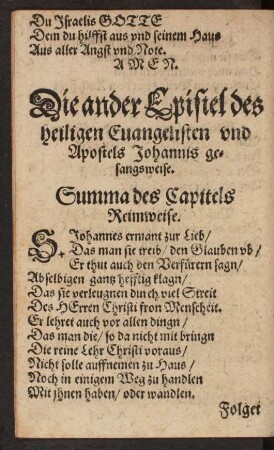 Du Jsraelis GOTTE
Dem du hilffst aus vnd seinem Haus
Aus aller Angst vnd Note.
A M E N.
Die ander Epistel des
heiligen Euangelisten vnd
Apostels Johannis ge-
sangsweise.
Summa des Capitels
Reimweise.
S. Johannes ermant zur Lieb/
Das man sie treib/ den Glauben vb/
Er thut auch den Verfürern sagn/
Ab selbigen gantz hefftig klagn/
Das sie verleugnen durch viel Streit
Des HErren Christi fron Menscheit.
Er lehret auch vor allen dingn/
Das man die/ so da nicht mit bringn
Die reine Lehr Christi voraus/
Nicht solle auffnemen zu Haus/
Noch in einigem Weg zu handlen
Mit jhnen haben/ oder wandlen.
Folget